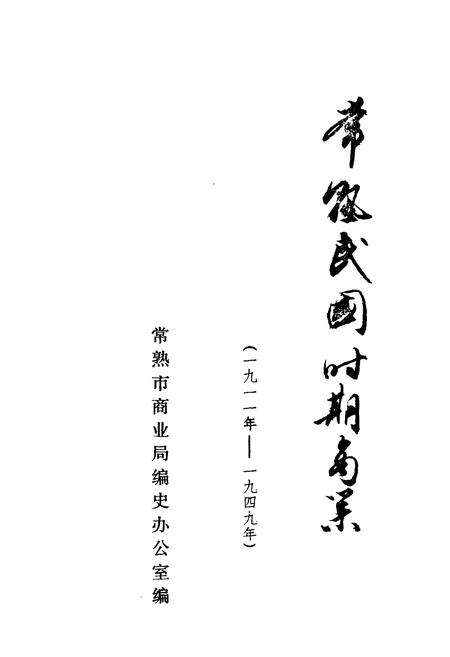 常熟民国时期商业
(一九一一年——一九四九年)
常熟市商业局编史办公室编